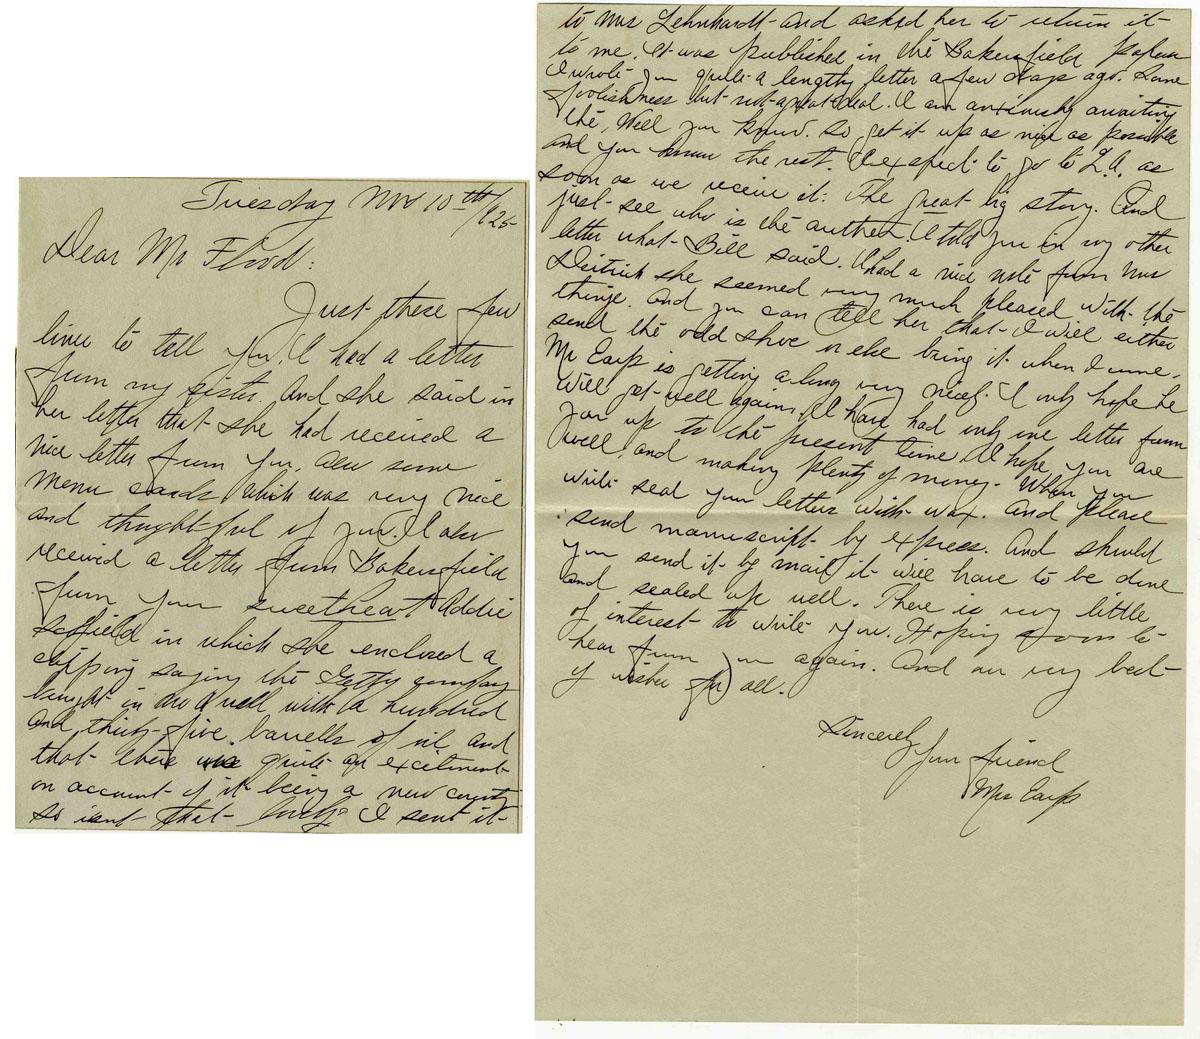 Tuesday Nov 10th/1925
Dear Mr Flood:
Just these few
lines to tell you. I had a letter
from my sister. And she said in
her letter that she had received a
nice letter from you, also some
menu cards which was very nice
and thoughtful of you. I also
received a letter from Bakersfield
from your sweetheart Addie
Scofield in which she enclosed a
clipping saying the Getty company
brought in a well with a hundred
and thirty-five barrells of oil and
that there was quite an excitement
on account of it being a new county
so isnt that lucky I sent it
to Mrs Lehnhardt and asked her to return it
to me. It was published in the Bakersfield papers
I wrote you quite a lengthy letter a few days ago. Some
foolishness but not a great deal. I am anxiously awaiting
the, Well you know. So get it up as nice as possible
and you know the rest. I expect to go to L.A. as
soon as we receive it. The great big story. And
just see who is the author. I told you in my other
letter what Bill said. I had a nice note from Mrs
Deitrich she seemed very much pleased with the
things. And you can tell her that I will either
send the odd shoe or else bring it when I come.
Mr Earp is getting along very nicely. I only hope he
will get well again. I have had only one letter from
you up to the present time. I hope you are
well, and making plenty of money. When you
write seal your letters with wax. And please
send manuscript by express. And should
you send it by mail it will have to be done
and sealed up well. There is very little
of interest to write you. Hoping soon to
hear from you again. And our very best
of wishes for all.
Sincerely Your friend
Mrs Earp